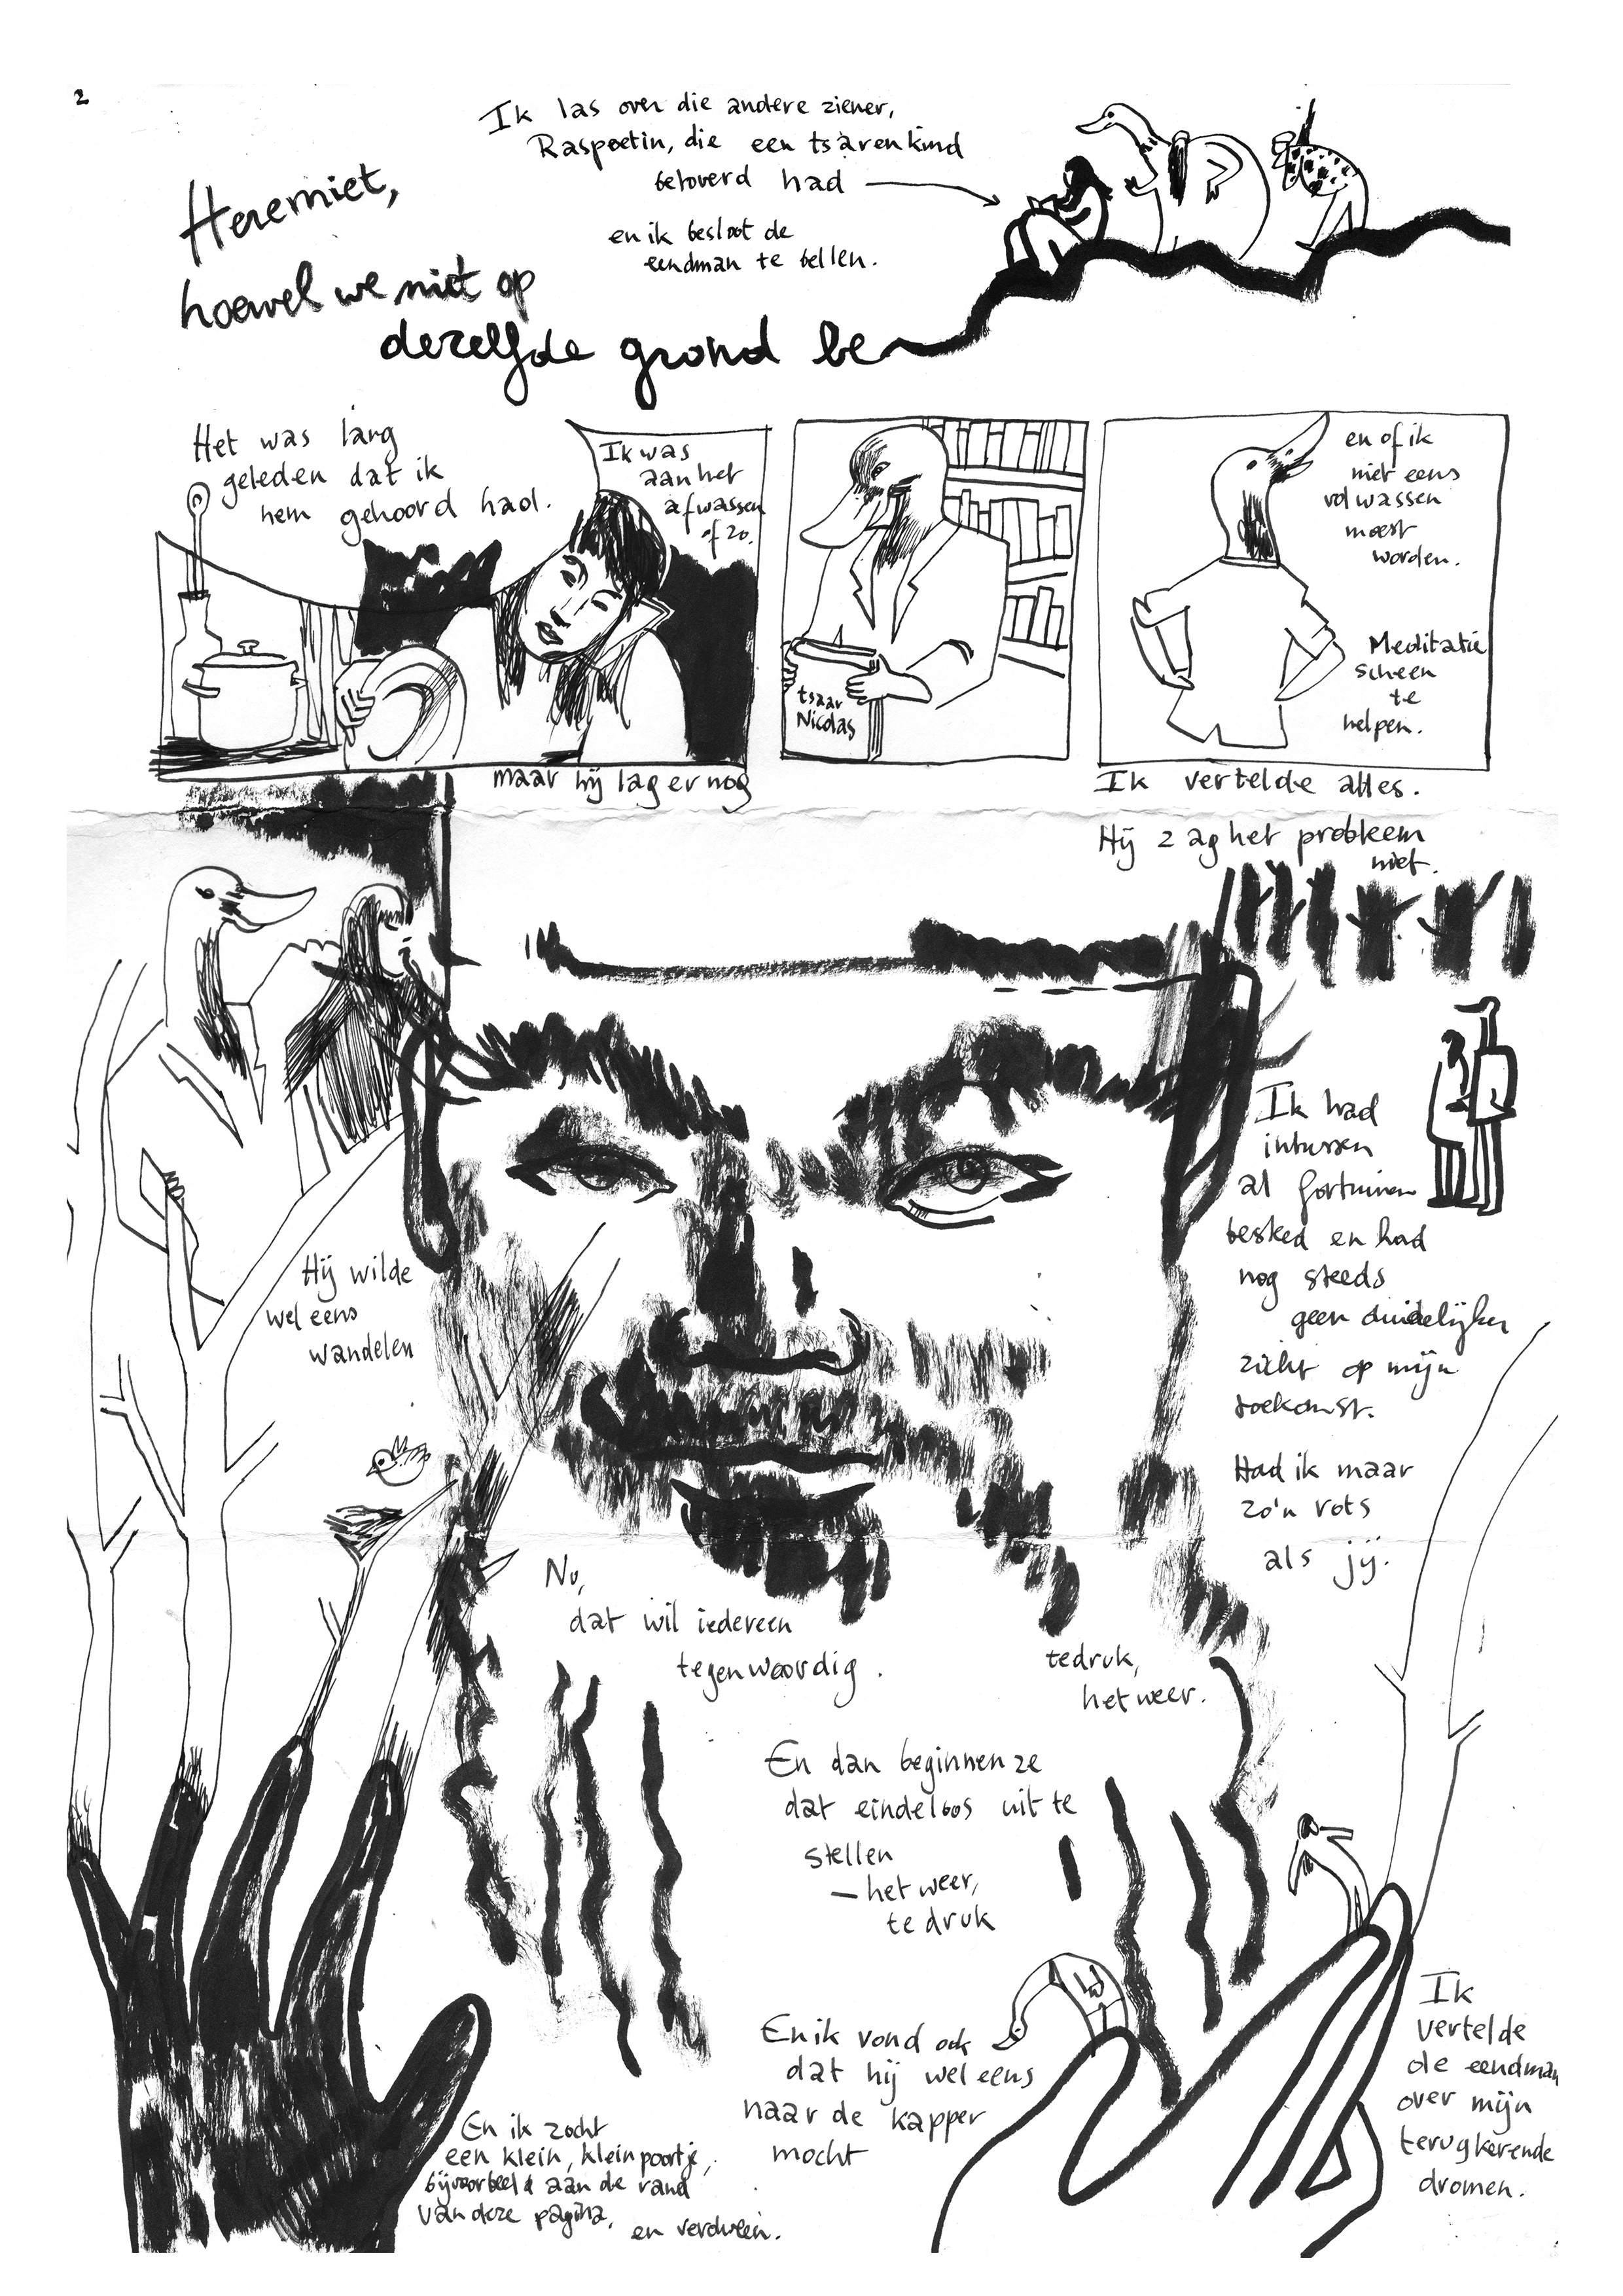 2
Ik las over die andere ziener,
Raspoetin, die een tsarenkind
betoverd had
en ik besloot de
eendman te bellen.
Heremiet,
hoewel we niet op
dezelfde grond be
Het was lang
geleden dat ik
hem gehoord had.
Ik was
aan het
afwassen
of zo.
maar hij lag er nog
tsaar
Nicolas
en of ik
niet eens
volwassen
moest
worden.
Meditatie
scheen
te
helpen.
Ik vertelde alles.
Hij zag het probleem
niet.
Hij wilde
wel eens
wandelen
Ik had
intussen
al fortuinen
besteed en had
nog steeds
geen duidelijker
zicht op mijn
toekomst.
Had ik maar
zo'n rots
als jij.
No,
dat wil iedereen
tegenwoordig.
En dan beginnen ze
dat eindeloos uit te
stellen
— het weer,
te druk
te druk,
het weer.
En ik vond ook
dat hij wel eens
naar de kapper
mocht
Ik
vertelde
de eendman
over mijn
terugkerende
dromen.
En ik zocht
een klein, klein poortje,
bijvoorbeeld aan de rand
van deze pagina,
en verdween.